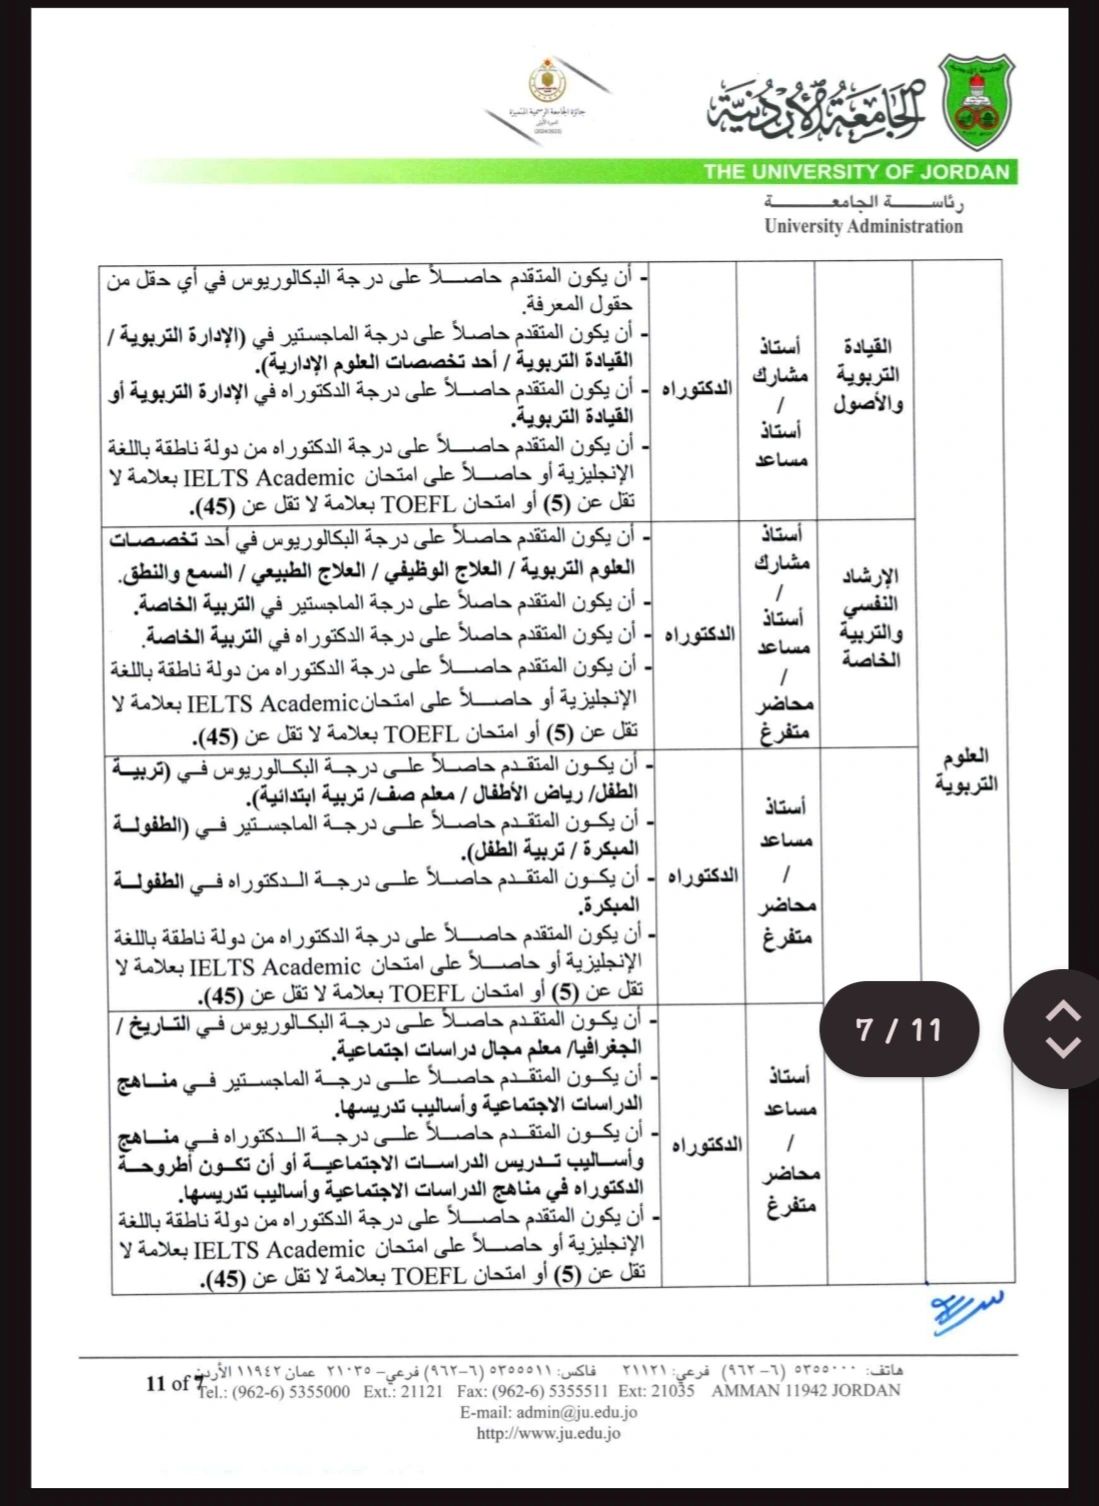 الجامعة الأردنية
جائزة الجامعة الرسمية المتميزة
THE UNIVERSITY OF JORDAN
رئاسة الجامعة
University Administration
العلوم
التربوية
القيادة
التربوية
والأصول
أستاذ
مشارك
/
أستاذ
مساعد
الدكتوراه
- أن يكون المتقدم حاصلاً على درجة البكالوريوس في أي حقل من
حقول المعرفة.
- أن يكون المتقدم حاصلاً على درجة الماجستير في (الإدارة التربوية /
القيادة التربوية / أحد تخصصات العلوم الإدارية).
- أن يكون المتقدم حاصلاً على درجة الدكتوراه في الإدارة التربوية أو
القيادة التربوية.
- أن يكون المتقدم حاصلاً على درجة الدكتوراه من دولة ناطقة باللغة
الإنجليزية أو حاصلاً على امتحان IELTS Academic بعلامة لا
تقل عن (5) أو امتحان TOEFL بعلامة لا تقل عن (45).
الإرشاد
النفسي
والتربية
الخاصة
أستاذ
مشارك
/
أستاذ
مساعد
/
محاضر
متفرغ
الدكتوراه
- أن يكون المتقدم حاصلاً على درجة البكالوريوس في أحد تخصصات
العلوم التربوية / العلاج الوظيفي / العلاج الطبيعي / السمع والنطق.
- أن يكون المتقدم حاصلاً على درجة الماجستير في التربية الخاصة.
- أن يكون المتقدم حاصلاً على درجة الدكتوراه في التربية الخاصة.
- أن يكون المتقدم حاصلاً على درجة الدكتوراه من دولة ناطقة باللغة
الإنجليزية أو حاصلاً على امتحان IELTS Academic بعلامة لا
تقل عن (5) أو امتحان TOEFL بعلامة لا تقل عن (45).
أستاذ
مساعد
/
محاضر
متفرغ
الدكتوراه
- أن يكون المتقدم حاصلاً على درجة البكالوريوس في (تربية
الطفل/ رياض الأطفال / معلم صف/ تربية ابتدائية).
- أن يكون المتقدم حاصلاً على درجة الماجستير في (الطفولة
المبكرة / تربية الطفل).
- أن يكون المتقدم حاصلاً على درجة الدكتوراه في الطفولة
المبكرة.
- أن يكون المتقدم حاصلاً على درجة الدكتوراه من دولة ناطقة باللغة
الإنجليزية أو حاصلاً على امتحان IELTS Academic بعلامة لا
تقل عن (5) أو امتحان TOEFL بعلامة لا تقل عن (45).
7 / 11
أستاذ
مساعد
/
محاضر
متفرغ
الدكتوراه
- أن يكون المتقدم حاصلاً على درجة البكالوريوس في التاريخ /
الجغرافيا/ معلم مجال دراسات اجتماعية.
- أن يكون المتقدم حاصلاً على درجة الماجستير في مناهج
الدراسات الاجتماعية وأساليب تدريسها.
- أن يكون المتقدم حاصلاً على درجة الدكتوراه في مناهج
وأساليب تدريس الدراسات الاجتماعية أو أن تكون أطروحة
الدكتوراه في مناهج الدراسات الاجتماعية وأساليب تدريسها.
- أن يكون المتقدم حاصلاً على درجة الدكتوراه من دولة ناطقة باللغة
الإنجليزية أو حاصلاً على امتحان IELTS Academic بعلامة لا
تقل عن (5) أو امتحان TOEFL بعلامة لا تقل عن (45).
هاتف: ٥٣٥٥٠٠٠ (٦-٩٦٢) فرعي: ٢١١٢١ فاكس: ٥٣٥٥٥١١ (٦-٩٦٢) فرعي- ٢١٠٣٥ عمان ١١٩٤٢ الأردن
11 of 7
Tel.: (962-6) 5355000 Ext.: 21121 Fax: (962-6) 5355511 Ext: 21035 AMMAN 11942 JORDAN
E-mail: admin@ju.edu.jo
http://www.ju.edu.jo